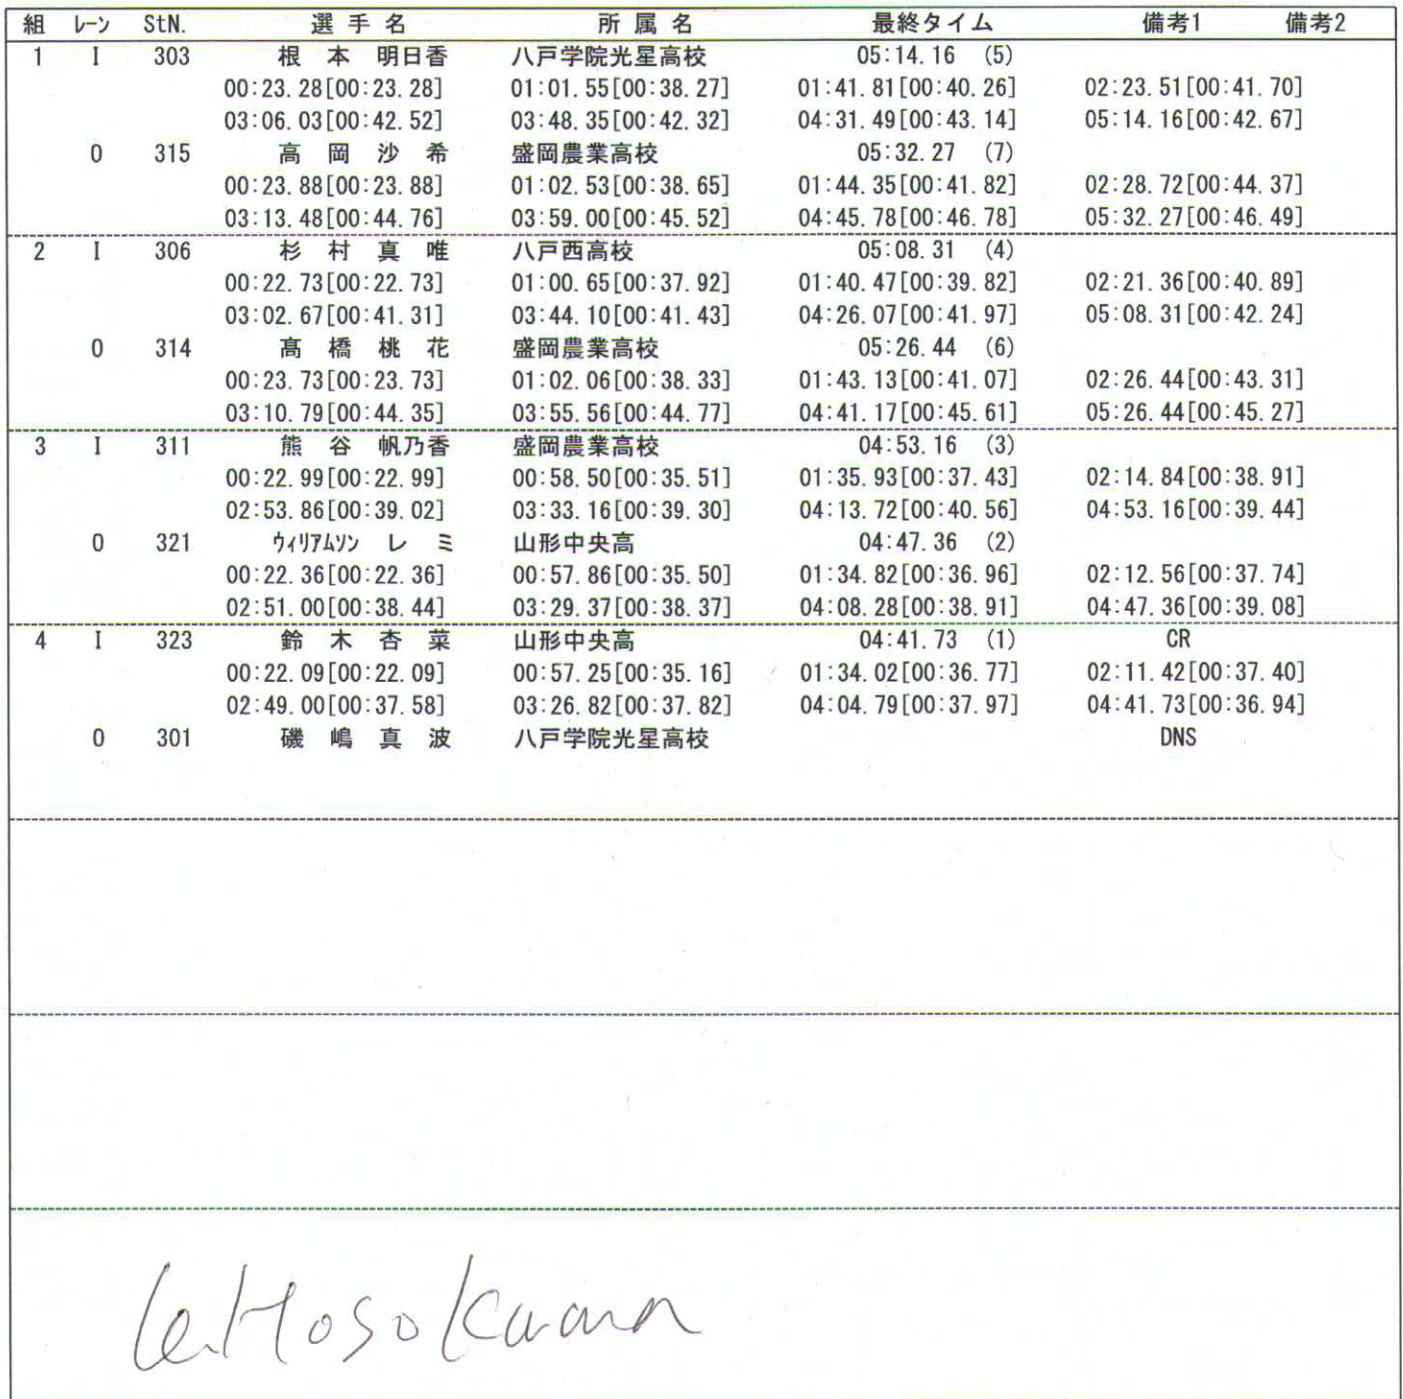 組 レーン StN. 選 手 名 所 属 名 最終タイム 備考1 備考2
1 I 303 根 本 明日香 八戸学院光星高校 05:14.16 (5)
00:23.28[00:23.28] 01:01.55[00:38.27] 01:41.81[00:40.26] 02:23.51[00:41.70]
03:06.03[00:42.52] 03:48.35[00:42.32] 04:31.49[00:43.14] 05:14.16[00:42.67]
O 315 高 岡 沙 希 盛岡農業高校 05:32.27 (7)
00:23.88[00:23.88] 01:02.53[00:38.65] 01:44.35[00:41.82] 02:28.72[00:44.37]
03:13.48[00:44.76] 03:59.00[00:45.52] 04:45.78[00:46.78] 05:32.27[00:46.49]
2 I 306 杉 村 真 唯 八戸西高校 05:08.31 (4)
00:22.73[00:22.73] 01:00.65[00:37.92] 01:40.47[00:39.82] 02:21.36[00:40.89]
03:02.67[00:41.31] 03:44.10[00:41.43] 04:26.07[00:41.97] 05:08.31[00:42.24]
O 314 髙 橋 桃 花 盛岡農業高校 05:26.44 (6)
00:23.73[00:23.73] 01:02.06[00:38.33] 01:43.13[00:41.07] 02:26.44[00:43.31]
03:10.79[00:44.35] 03:55.56[00:44.77] 04:41.17[00:45.61] 05:26.44[00:45.27]
3 I 311 熊 谷 帆乃香 盛岡農業高校 04:53.16 (3)
00:22.99[00:22.99] 00:58.50[00:35.51] 01:35.93[00:37.43] 02:14.84[00:38.91]
02:53.86[00:39.02] 03:33.16[00:39.30] 04:13.72[00:40.56] 04:53.16[00:39.44]
O 321 ウィリアムソン レ ミ 山形中央高 04:47.36 (2)
00:22.36[00:22.36] 00:57.86[00:35.50] 01:34.82[00:36.96] 02:12.56[00:37.74]
02:51.00[00:38.44] 03:29.37[00:38.37] 04:08.28[00:38.91] 04:47.36[00:39.08]
4 I 323 鈴 木 杏 菜 山形中央高 04:41.73 (1) CR
00:22.09[00:22.09] 00:57.25[00:35.16] 01:34.02[00:36.77] 02:11.42[00:37.40]
02:49.00[00:37.58] 03:26.82[00:37.82] 04:04.79[00:37.97] 04:41.73[00:36.94]
O 301 磯 嶋 真 波 八戸学院光星高校 DNS